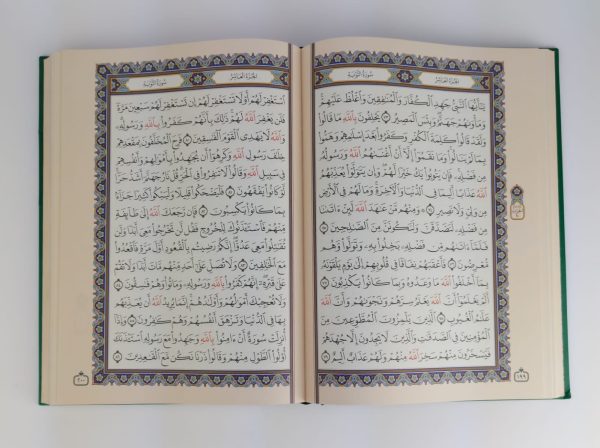 الجُزْءُ العَاشِرُ سُورَةُ التَّوْبَةِ
يَٰٓأَيُّهَا ٱلنَّبِيُّ جَٰهِدِ ٱلْكُفَّارَ وَٱلْمُنَٰفِقِينَ وَٱغْلُظْ عَلَيْهِمْ
وَمَأْوَىٰهُمْ جَهَنَّمُ وَبِئْسَ ٱلْمَصِيرُ ٧٣ يَحْلِفُونَ بِٱللَّهِ مَا قَالُوا۟
وَلَقَدْ قَالُوا۟ كَلِمَةَ ٱلْكُفْرِ وَكَفَرُوا۟ بَعْدَ إِسْلَٰمِهِمْ وَهَمُّوا۟
بِمَا لَمْ يَنَالُوا۟ وَمَا نَقَمُوٓا۟ إِلَّآ أَنْ أَغْنَىٰهُمُ ٱللَّهُ وَرَسُولُهُۥ
مِن فَضْلِهِۦ فَإِن يَتُوبُوا۟ يَكُ خَيْرًا لَّهُمْ وَإِن يَتَوَلَّوْا۟ يُعَذِّبْهُمُ
ٱللَّهُ عَذَابًا أَلِيمًا فِى ٱلدُّنْيَا وَٱلْءَاخِرَةِ وَمَا لَهُمْ فِى ٱلْأَرْضِ
مِن وَلِىٍّ وَلَا نَصِيرٍ ٧٤ وَمِنْهُم مَّنْ عَٰهَدَ ٱللَّهَ لَئِنْ ءَاتَىٰنَا
مِن فَضْلِهِۦ لَنَصَّدَّقَنَّ وَلَنَكُونَنَّ مِنَ ٱلصَّٰلِحِينَ ٧٥
فَلَمَّآ ءَاتَىٰهُم مِّن فَضْلِهِۦ بَخِلُوا۟ بِهِۦ وَتَوَلَّوا۟ وَّهُم
مُّعْرِضُونَ ٧٦ فَأَعْقَبَهُمْ نِفَاقًا فِى قُلُوبِهِمْ إِلَىٰ يَوْمِ يَلْقَوْنَهُۥ
بِمَآ أَخْلَفُوا۟ ٱللَّهَ مَا وَعَدُوهُ وَبِمَا كَانُوا۟ يَكْذِبُونَ ٧٧
أَلَمْ يَعْلَمُوٓا۟ أَنَّ ٱللَّهَ يَعْلَمُ سِرَّهُمْ وَنَجْوَىٰهُمْ وَأَنَّ ٱللَّهَ
عَلَّٰمُ ٱلْغُيُوبِ ٧٨ ٱلَّذِينَ يَلْمِزُونَ ٱلْمُطَّوِّعِينَ مِنَ
ٱلْمُؤْمِنِينَ فِى ٱلصَّدَقَٰتِ وَٱلَّذِينَ لَا يَجِدُونَ إِلَّا جُهْدَهُمْ
فَيَسْخَرُونَ مِنْهُمْ سَخِرَ ٱللَّهُ مِنْهُمْ وَلَهُمْ عَذَابٌ أَلِيمٌ ٧٩
١٩٩
الجُزْءُ العَاشِرُ سُورَةُ التَّوْبَةِ
ٱسْتَغْفِرْ لَهُمْ أَوْ لَا تَسْتَغْفِرْ لَهُمْ إِن تَسْتَغْفِرْ لَهُمْ سَبْعِينَ مَرَّةً
فَلَن يَغْفِرَ ٱللَّهُ لَهُمْ ذَٰلِكَ بِأَنَّهُمْ كَفَرُوا۟ بِٱللَّهِ وَرَسُولِهِۦ
وَٱللَّهُ لَا يَهْدِى ٱلْقَوْمَ ٱلْفَٰسِقِينَ ٨٠ فَرِحَ ٱلْمُخَلَّفُونَ بِمَقْعَدِهِمْ
خِلَٰفَ رَسُولِ ٱللَّهِ وَكَرِهُوٓا۟ أَن يُجَٰهِدُوا۟ بِأَمْوَٰلِهِمْ وَأَنفُسِهِمْ
فِى سَبِيلِ ٱللَّهِ وَقَالُوا۟ لَا تَنفِرُوا۟ فِى ٱلْحَرِّ قُلْ نَارُ جَهَنَّمَ أَشَدُّ حَرًّا
لَّوْ كَانُوا۟ يَفْقَهُونَ ٨١ فَلْيَضْحَكُوا۟ قَلِيلًا وَلْيَبْكُوا۟ كَثِيرًا جَزَآءًۢ
بِمَا كَانُوا۟ يَكْسِبُونَ ٨٢ فَإِن رَّجَعَكَ ٱللَّهُ إِلَىٰ طَآئِفَةٍ
مِّنْهُمْ فَٱسْتَـْٔذَنُوكَ لِلْخُرُوجِ فَقُل لَّن تَخْرُجُوا۟ مَعِىَ أَبَدًا وَلَن
تُقَٰتِلُوا۟ مَعِىَ عَدُوًّا إِنَّكُمْ رَضِيتُم بِٱلْقُعُودِ أَوَّلَ مَرَّةٍ فَٱقْعُدُوا۟
مَعَ ٱلْخَٰلِفِينَ ٨٣ وَلَا تُصَلِّ عَلَىٰٓ أَحَدٍ مِّنْهُم مَّاتَ أَبَدًا وَلَا تَقُمْ
عَلَىٰ قَبْرِهِۦٓ إِنَّهُمْ كَفَرُوا۟ بِٱللَّهِ وَرَسُولِهِۦ وَمَاتُوا۟ وَهُمْ فَٰسِقُونَ ٨٤
وَلَا تُعْجِبْكَ أَمْوَٰلُهُمْ وَأَوْلَٰدُهُمْ إِنَّمَا يُرِيدُ ٱللَّهُ أَن يُعَذِّبَهُم
بِهَا فِى ٱلدُّنْيَا وَتَزْهَقَ أَنفُسُهُمْ وَهُمْ كَٰفِرُونَ ٨٥ وَإِذَآ
أُنزِلَتْ سُورَةٌ أَنْ ءَامِنُوا۟ بِٱللَّهِ وَجَٰهِدُوا۟ مَعَ رَسُولِهِ ٱسْتَـْٔذَنَكَ
أُو۟لُوا۟ ٱلطَّوْلِ مِنْهُمْ وَقَالُوا۟ ذَرْنَا نَكُن مَّعَ ٱلْقَٰعِدِينَ ٨٦
٢٠٠